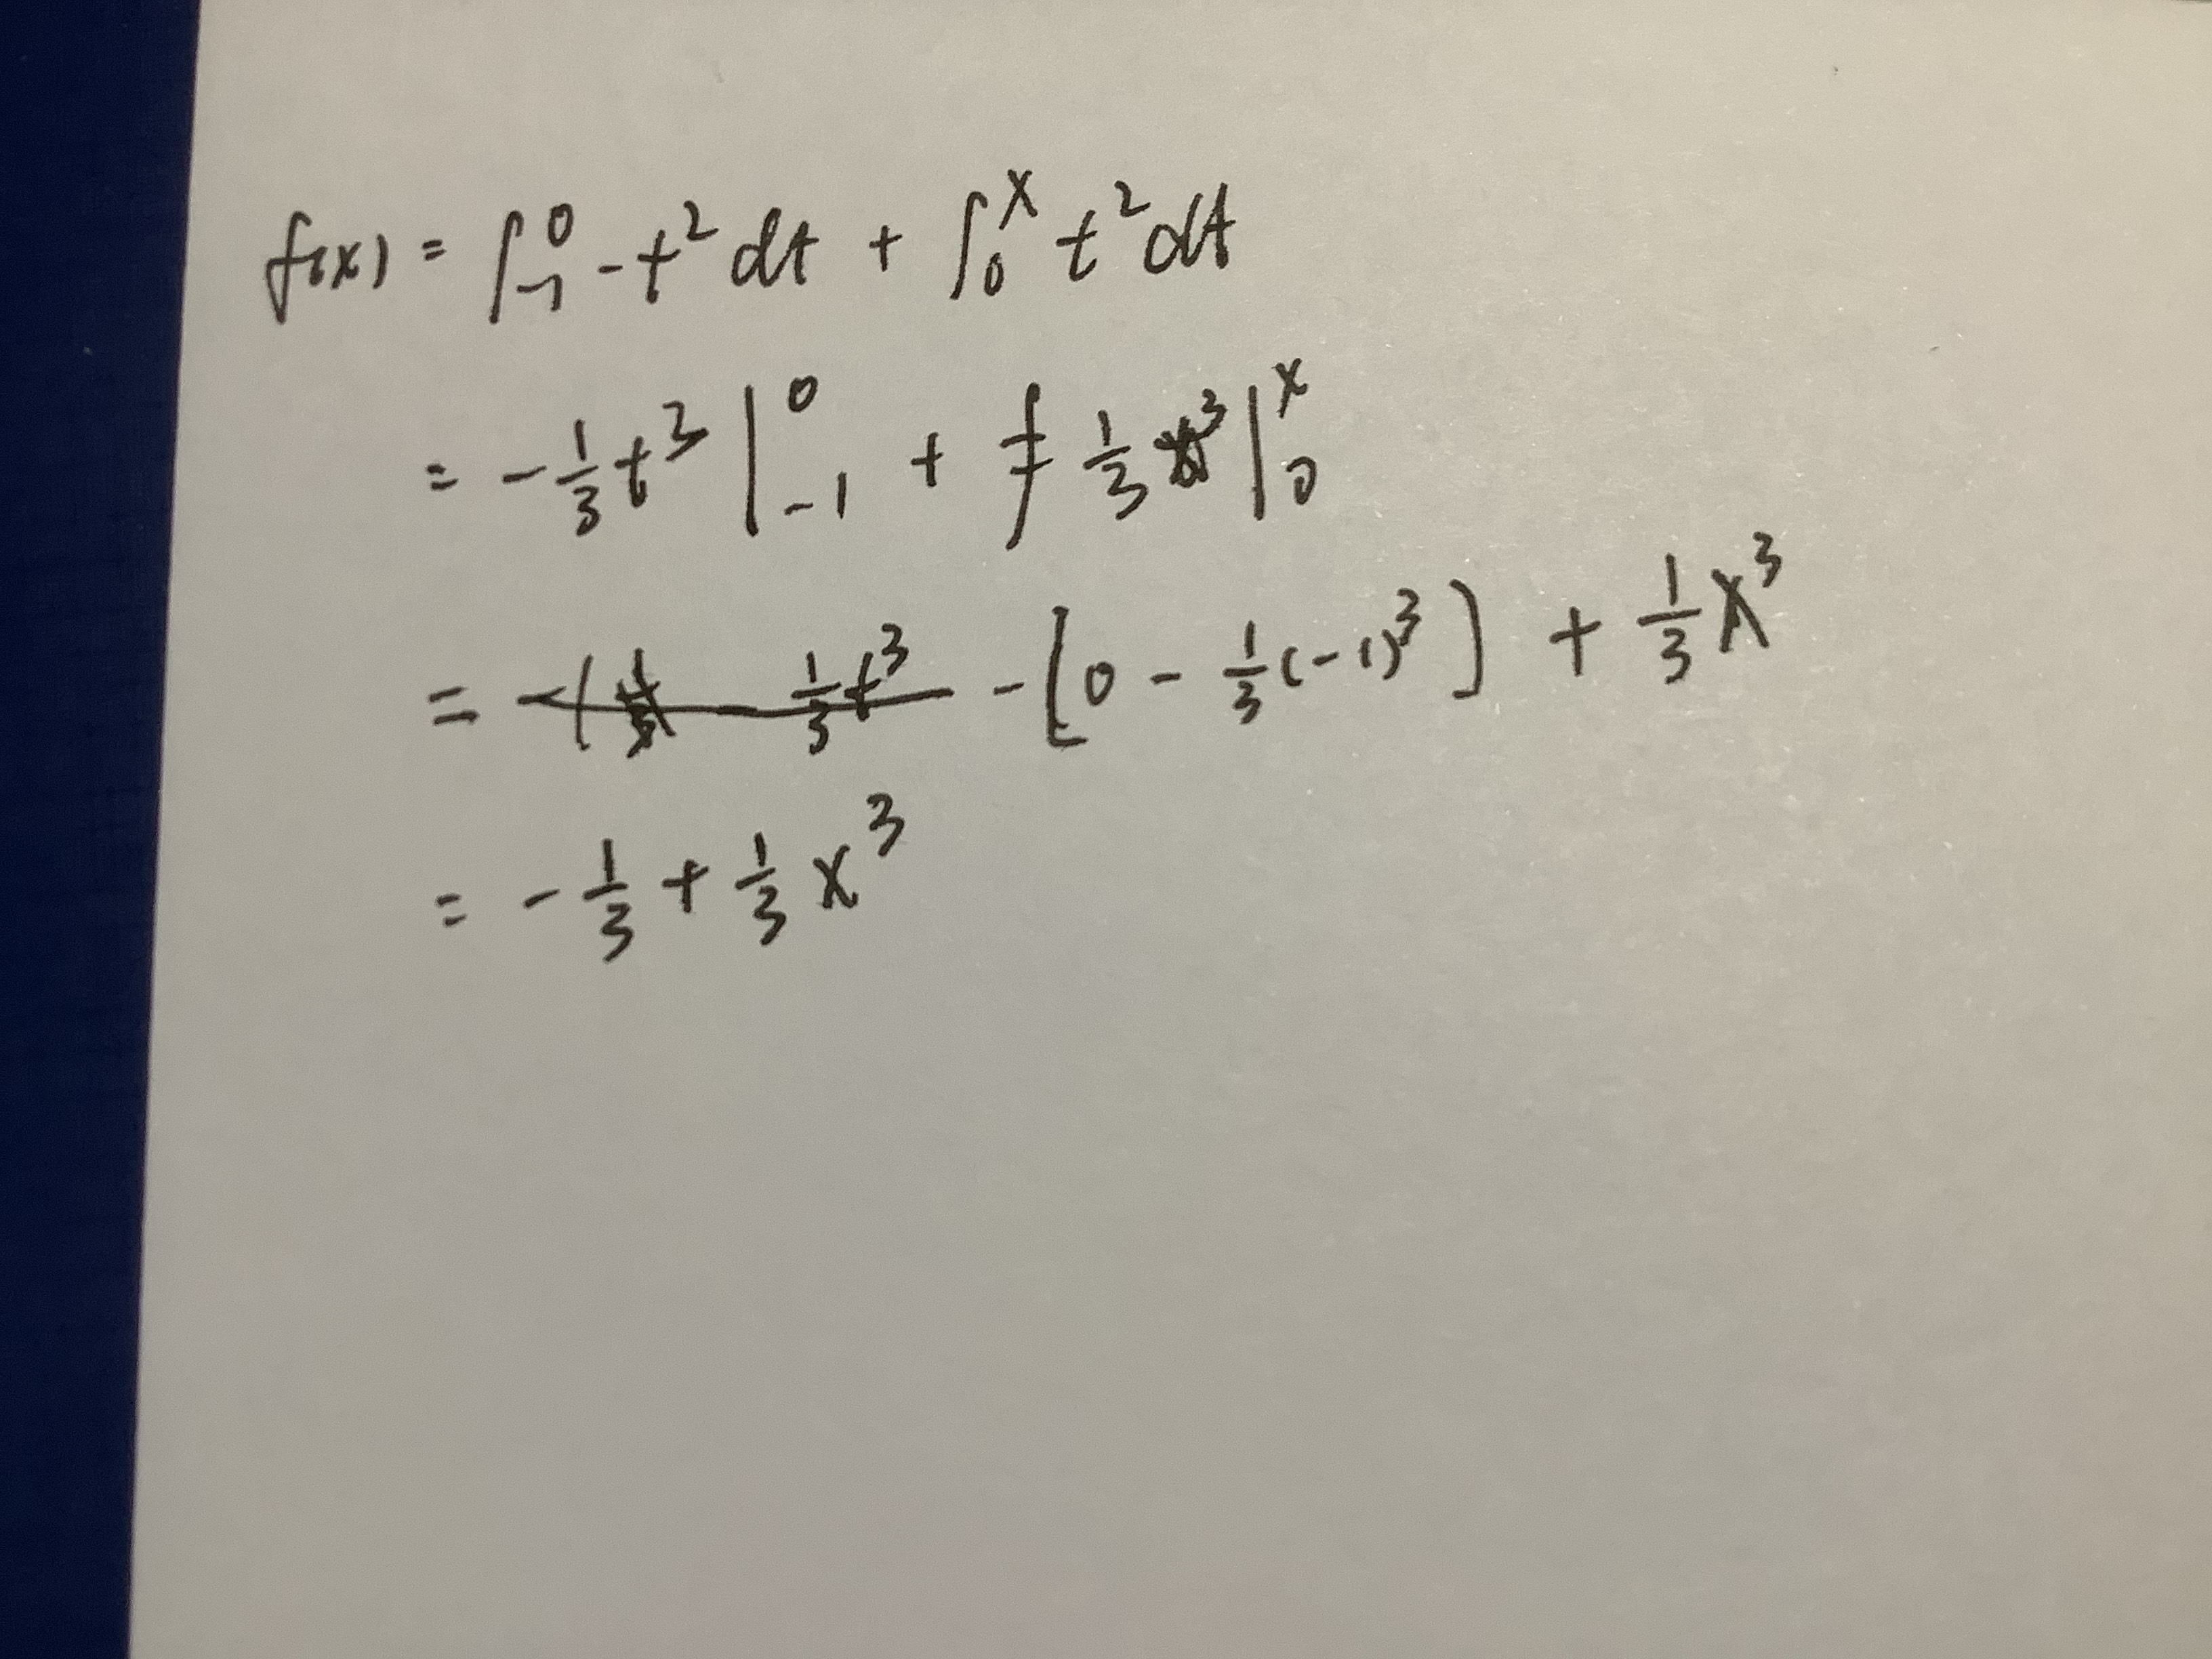 f(x) = ∫₋₁⁰ -t² dt + ∫₀ˣ t² dt
= -1/3 t³ |₋₁⁰ + 1/3 ³ |₀ˣ
= - [0 - 1/3 (-1)³] + 1/3 x³
= - 1/3 + 1/3 x³